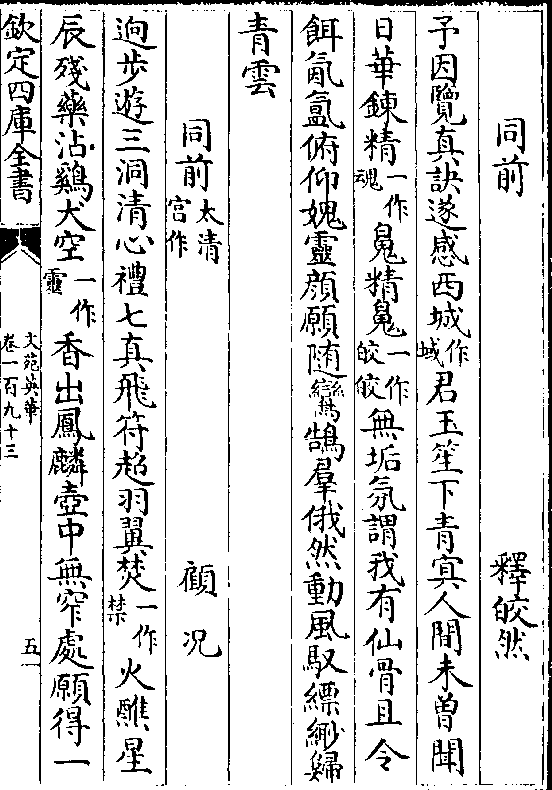 同前 釋皎然
予因覽真訣遂感西城作域君玉笙下青冥人間未曾聞
日華鍊精一作魂鬼精鬼一作皎皎無垢氛謂我有仙骨且令
餌氤氲俯仰媿靈顔願随鸞鵠羣俄然動風馭縹緲歸
青雲
同前太清宫作 顧况
逈步遊三洞清心禮七真飛符超羽翼焚一作禁火醮星
辰殘藥沾鷄犬空一作靈香出鳳麟壺中無窄處願得一
欽定四庫全書 文苑英華卷一百九十三 五